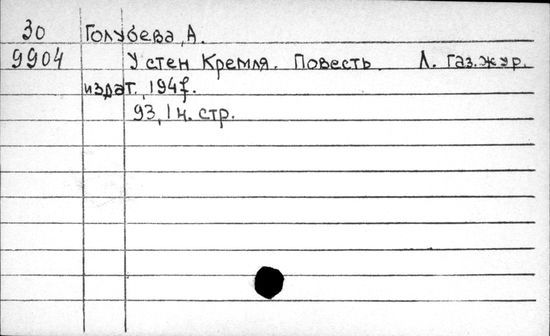 30 Голубева, А.
9904 У стен Кремля. Повесть Л. Газ.жур.
издат., 1947.
93, 1 н. стр.